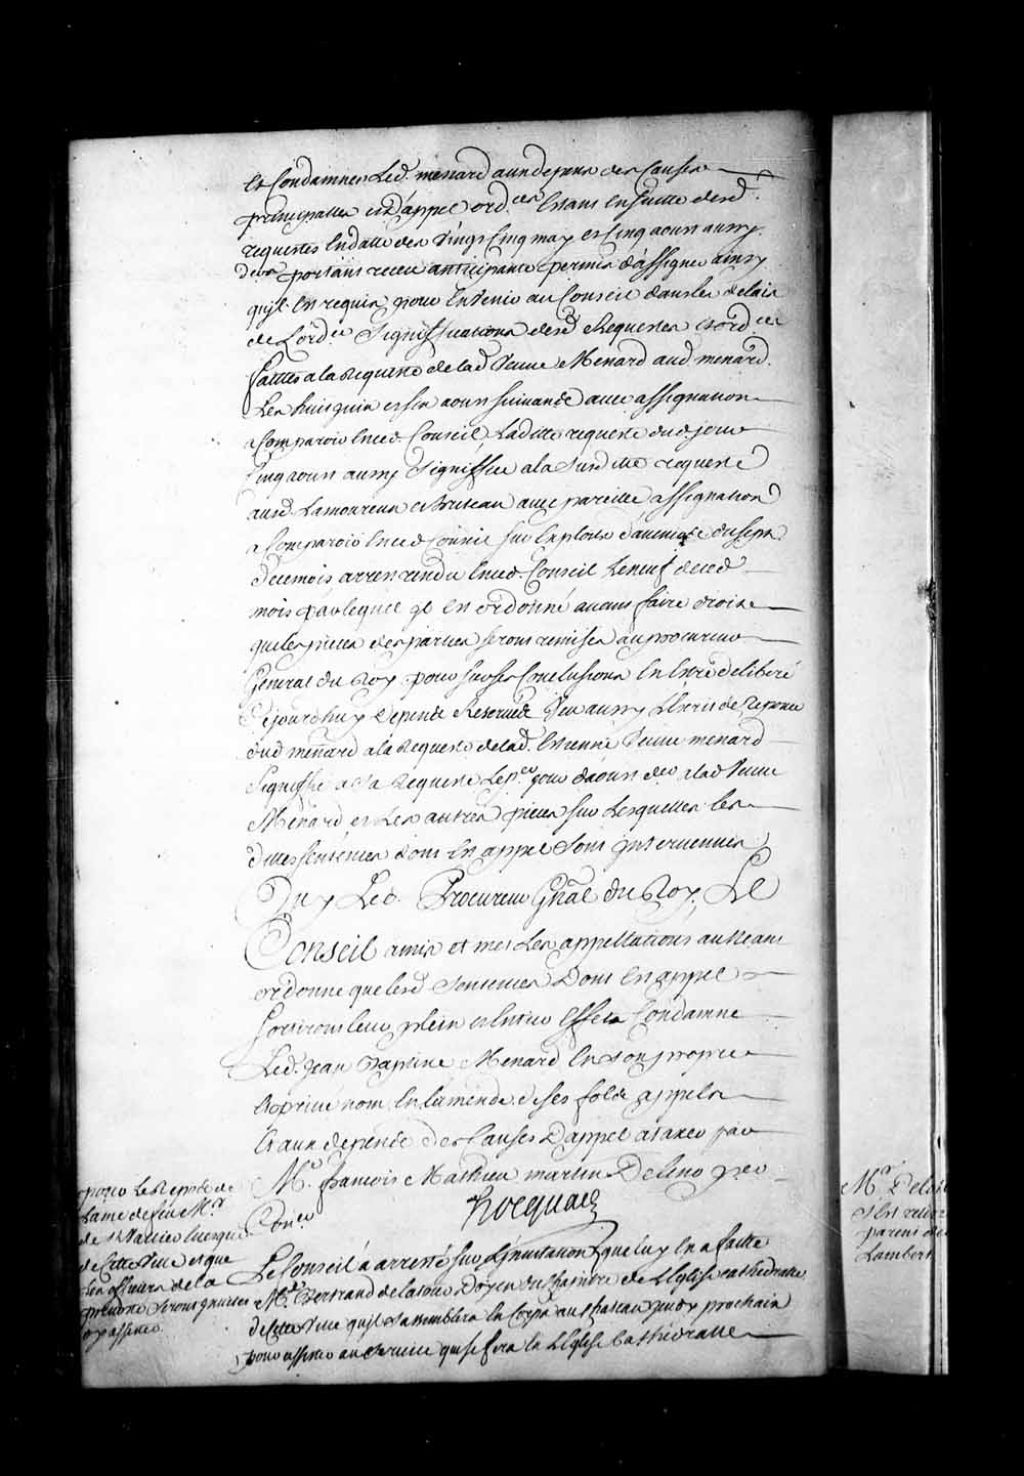 et Condamner Led. menard aux depens des Causes
principalles et d'appel ord.ces Estans Ensuitte desd.
requestes Endatte des Vingt Cinq may et Cinq aoust aussy
portans receu anticipante permis d'assigner ainsy
qu'il Est requis pour Envenir au Conseil dans les delais
de Lord.ce Significations desd. Requestes et ord.ces
faittes a la Requeste de lad. Veuve Menard aud. menard
Les huit juin et six aoust suivants avec assignation
a Comparoir Enced. Conseil, Laditte requeste dud. jour
Cinq aoust aussy Signiffiée a la susditte requeste
ausd. Lamoureux et avec pareille assignation
a Comparoir Enced. Conseil sur Exploits
de ce mois arrest rendu Enced. Conseil Le neuf de ced.
mois par lequel il Est ordonné avant faire droit
que les pieces des parties seront remises au procureur
General du Roy pour sur ses Conclusions En Estre deliberé
ce jourdhuy depens Reservés Veu aussy
dud. menard a la Requeste de lad. Estienne Veuve menard
Signiffié a sa Requeste Le jour d'aoust a lad. Veuve
Menard et Les autres pieces sur Lesquelles Les
dittes sentences dont Est appel sont intervenues
Ouy Led. Procureur Gnal du Roy, Le
Conseil a mis et met Les appellations au Neant
ordonne que lesd. Sentences Dont Est appel
Sortiront leur plein et Entier Effet Condamne
Led. Jean Baptiste Menard En son propre
et privé nom En Lamende de ses fols appels
Et aux depens des Causes D'appel a taxer par
M.e françois Mathieu martin Delino
Con.er
Hocquart
Le Conseil a arresté sur L'invitation que luy En a faitte
M.e Bertrand de la tour Doyen du Chapitre de L'Eglise Cathedralle
de Cette Ville qu'il s'assemblera En Corps au Chateau jeudy prochain
pour assister au service qui se fera En L'Eglise Cathedralle
pour Le Repos de
Lame de feu M.r
de St Vallier Evesque
de Cette Ville et que
Les officiers de la
prevosté seront invités
d'y assister.
M.r Deli
parent de
Lambert